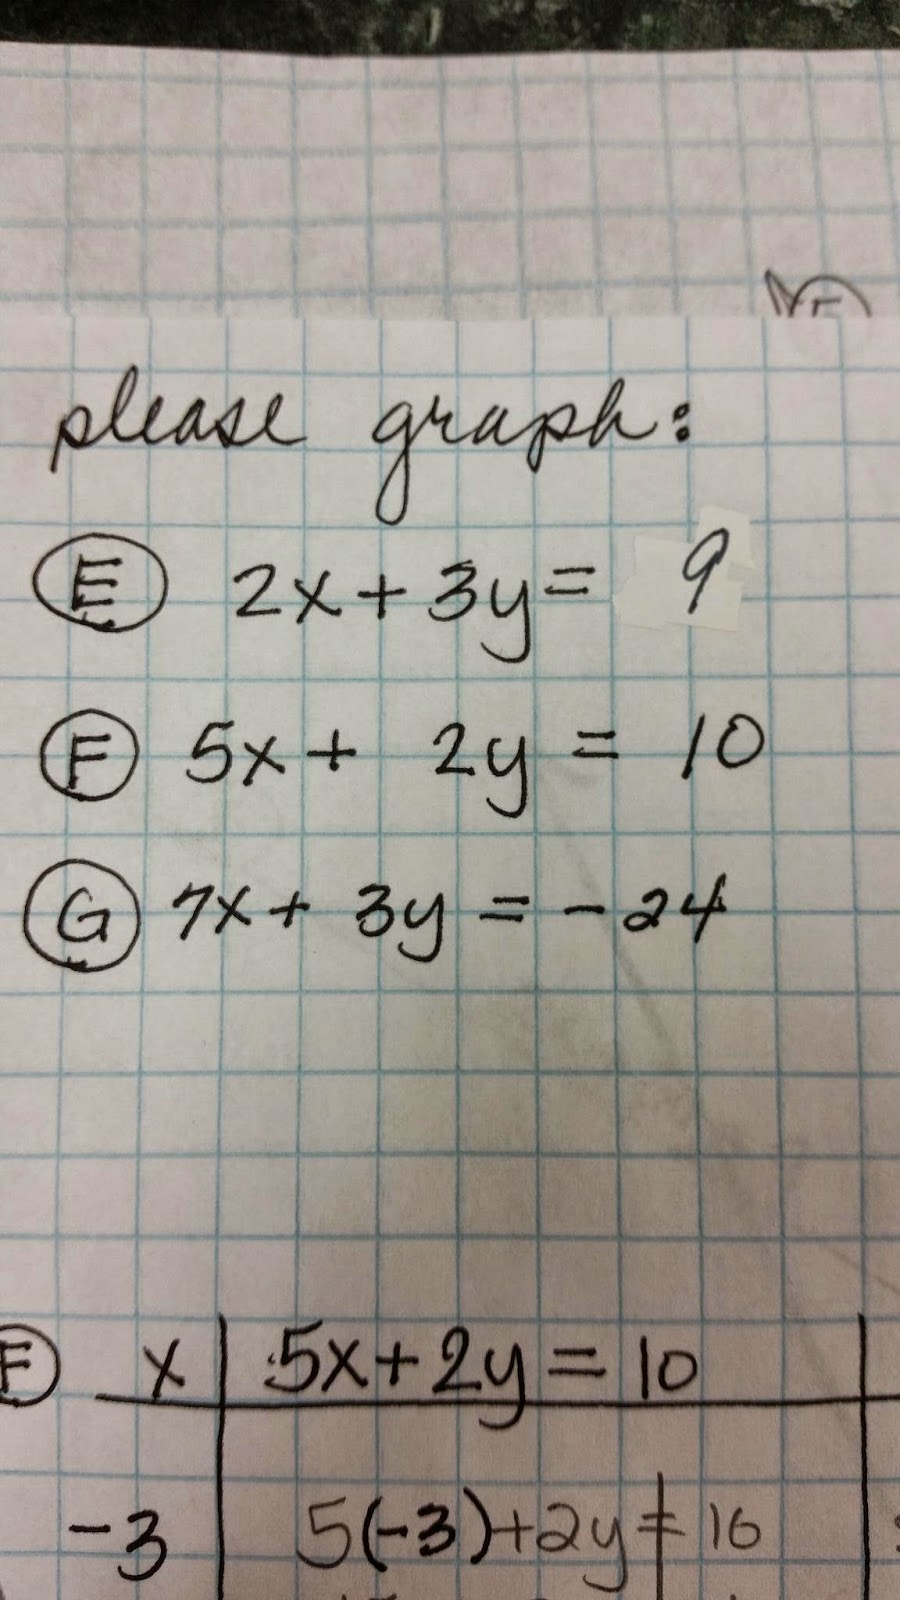 please graph:
E 2x + 3y = 9
F 5x + 2y = 10
G 7x + 3y = -24
F x 5x + 2y = 10
-3 5(-3) + 2y = 10